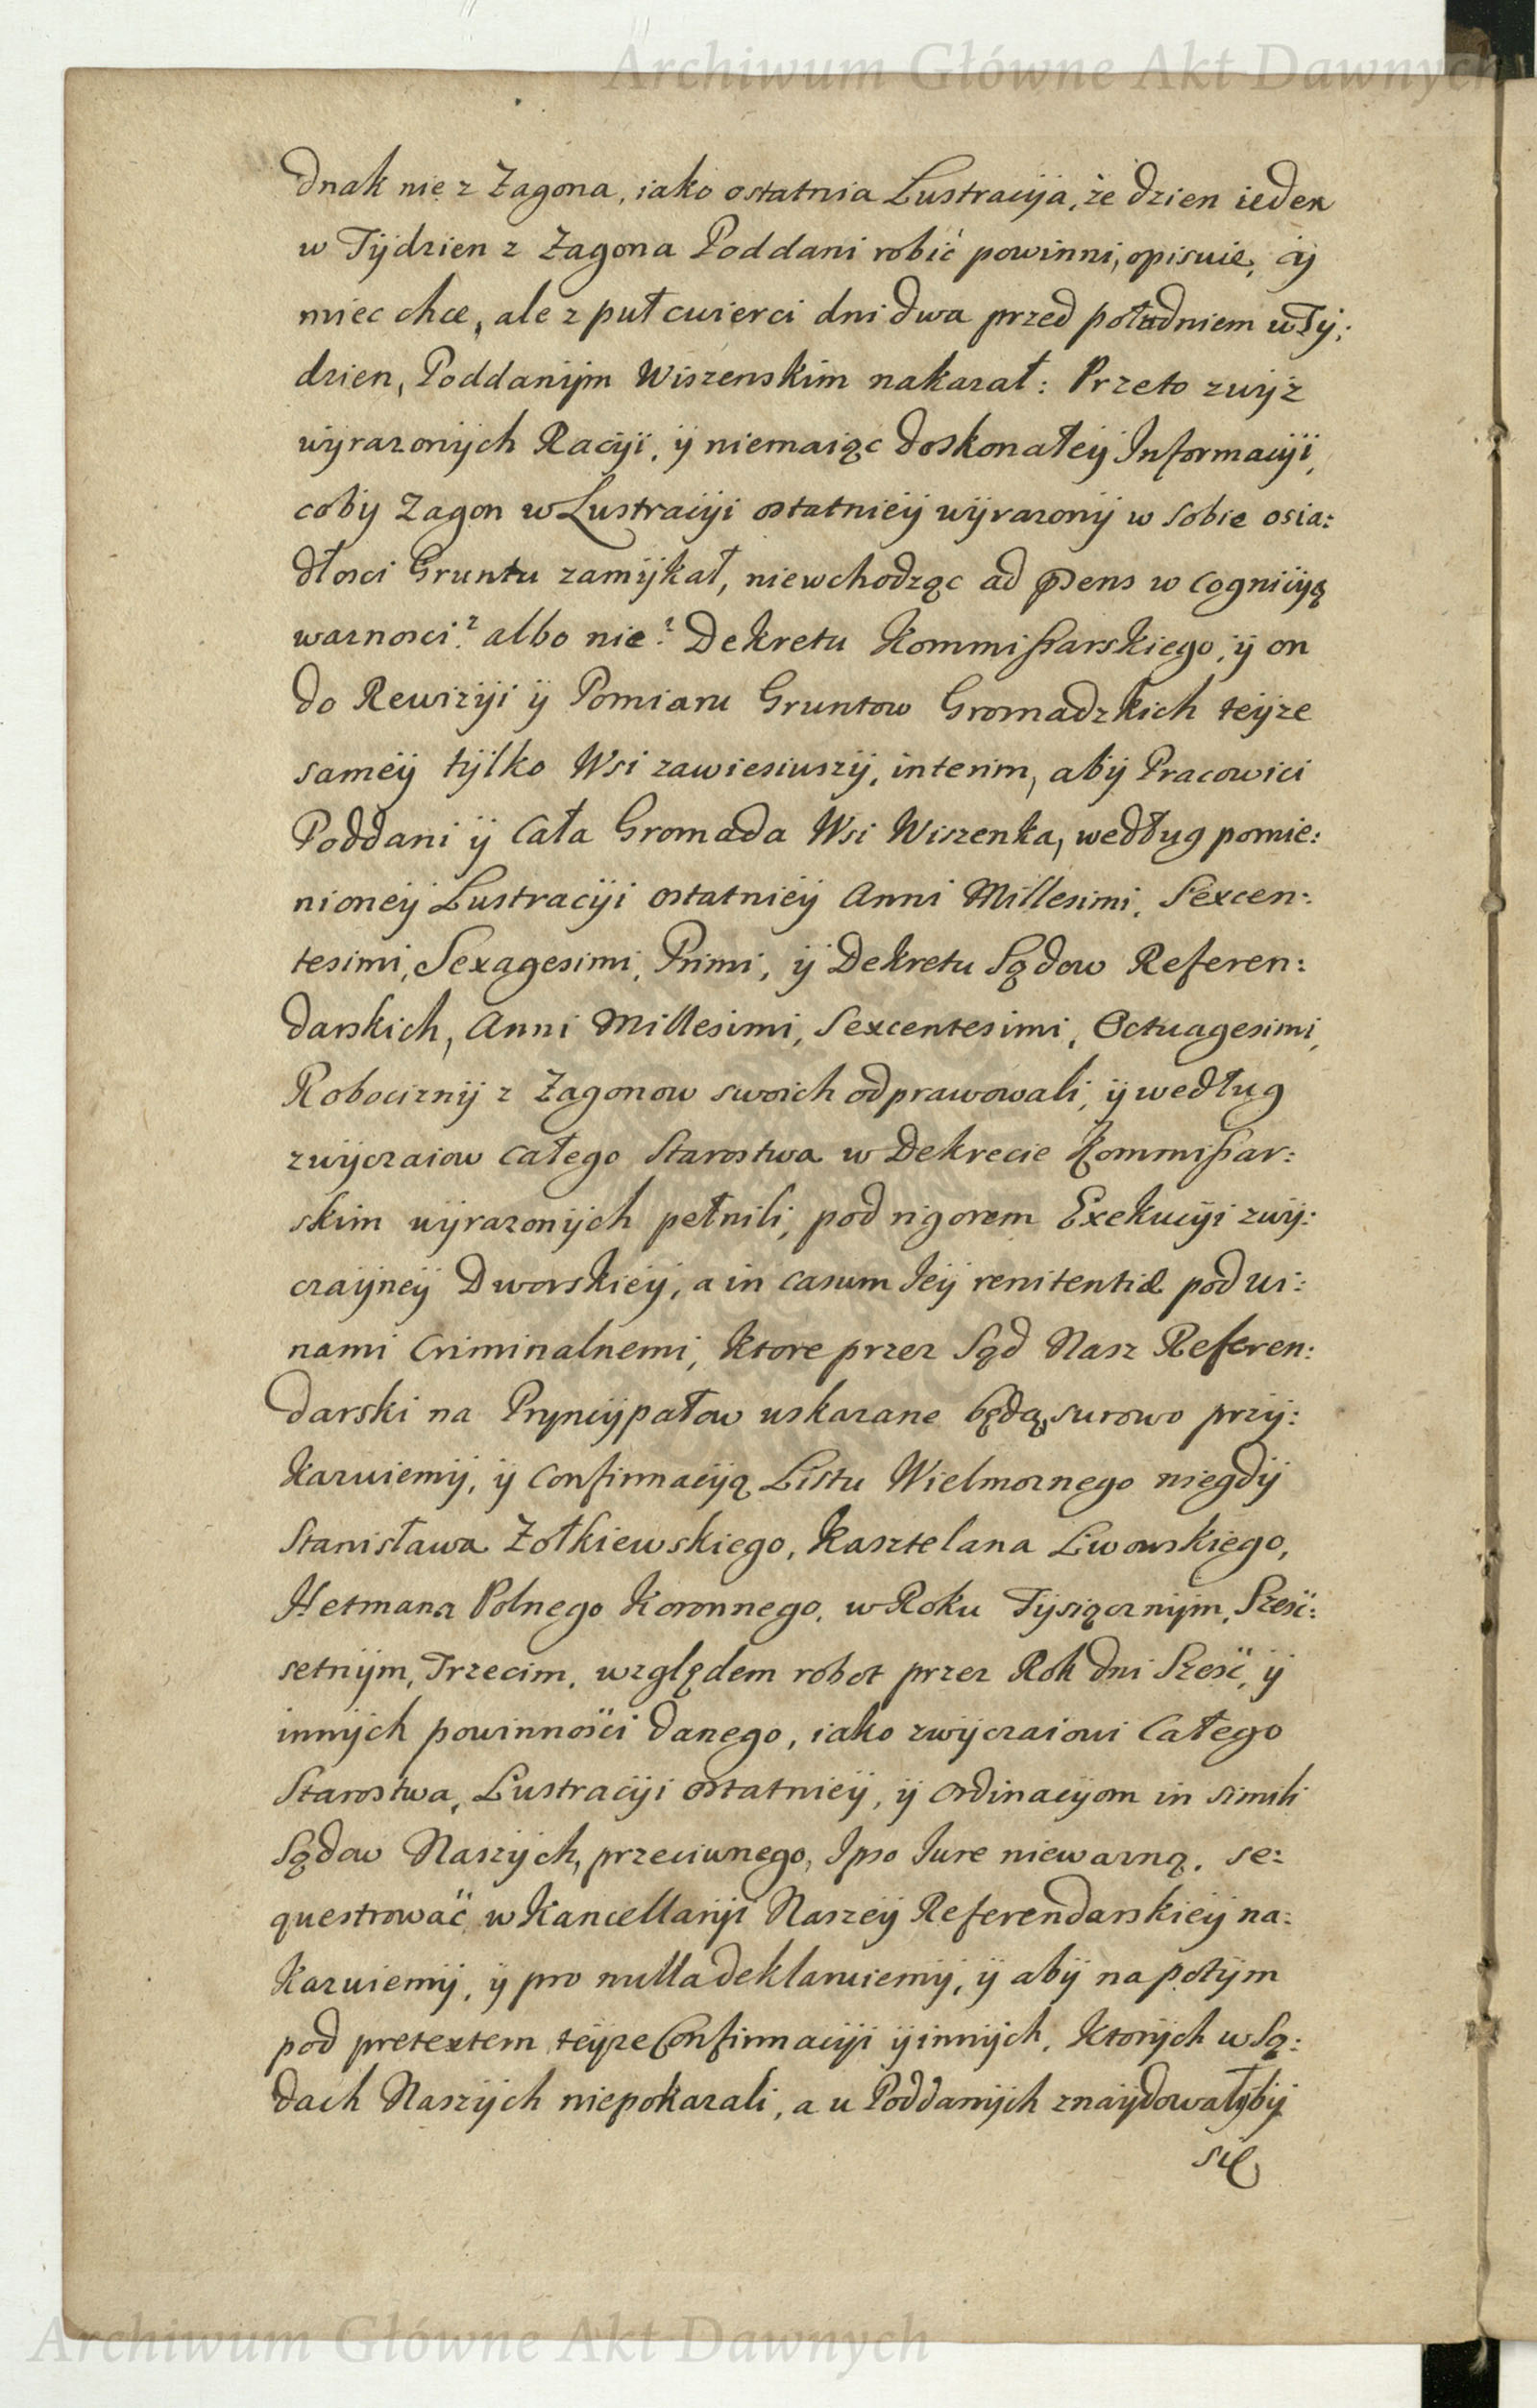 Archiwum Główne Akt Dawnych
dnak nie z Zagona, iako ostatnia Lustracyja, że dzien ieden
w Tydzien z Zagona Poddani robić powinni, opisuie, y
miec chce, ale z puł cwierci dni dwa przed południem w Ty:
dzien, Poddanym Wiszenskim nakazał: Przeto zwyż
wyrazonych Racyi, y niemaiąc doskonałey Informacyi,
coby Zagon w Lustracyi ostatniey wyrazony w sobie osia:
dłosci Gruntu zamykał, niewchodząc ad præsens w cognicyą
waznosci? albo nie? Dekretu Kommissarskiego, y on
do Rewizyi y Pomiaru Gruntow Gromadzkich teyze
samey tylko Wsi zawiesiwszy, interim, aby Pracowici
Poddani y cała Gromada Wsi Wiszenka, według pomie:
nioney Lustracyi ostatniey Anni Millesimi, Sexcen:
tesimi, Sexagesimi, Primi, y Dekretu Sądow Referen:
darskich, Anni Millesimi, Sexcentesimi, Octuagesimi,
Robocizny z Zagonow swoich odprawowali, y według
zwyczaiow całego Starostwa w Dekrecie Kommissar:
skim wyrazonych pełnili, pod rigorem Exekucyi zwy:
czayney Dworskiey, a in casum Iey renitentiæ pod wi:
nami Criminalnemi, ktore przez Sąd Nasz Referen:
darski na Pryncypałow uskazane będą, surowo przy:
kazuiemy, y confirmacyą Listu Wielmoznego niegdy
Stanisława Zołkiewskiego, Kasztelana Lwowskiego,
Hetmana Polnego Koronnego, w Roku Tysiącznym, Sześć:
setnym, Trzecim, względem robot przez Rok dni Sześć, y
innych powinności danego, iako zwyczaiowi Całego
Starostwa, Lustracyi ostatniey, y ordinacyom in simili
Sądow Naszych, przeciwnego, Ipso Iure niewazną, se:
questrować w Kancellaryi Naszey Referendarskiey na:
kazuiemy, y pro nulla deklaruiemy, y aby napotym
pod pretextem teyze Confirmacyi y innych, ktorych w Są:
dach Naszych niepokazali, a u Poddanych znaydowałyby
się
Archiwum Główne Akt Dawnych